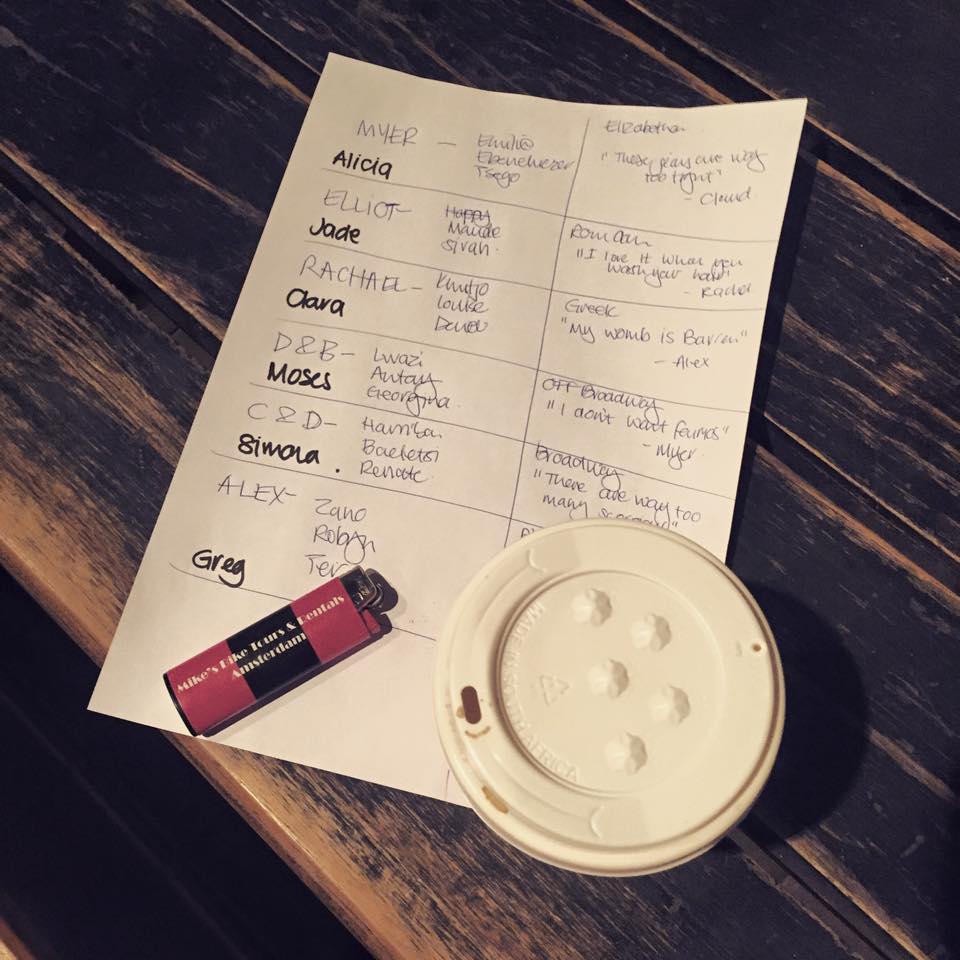 MYER - Emilie
Ebenehezer
Tsego
Alicia
Elizabethan
"These plays are way
too tight"
- Cloud
ELLIOT - Happy
Maude
Sivan.
Jade
Roman
"I love it when you
wash your hair"
- Rachel
RACHAEL - Khutjo
Louise
Clara
Greek
"My womb is Barren"
- Alex
D&B - Lwazi
Antony
Georgina.
Moses
Off Broadway
"I don't want ferrros"
- Myer
C&D -
Renate.
Simona.
Broadway
"There are way too
many
ALEX - Zano
Robyn
Greg
Mike's Bike Tours & Rentals
Amsterdam
MADE IN SOUTH AFRICA